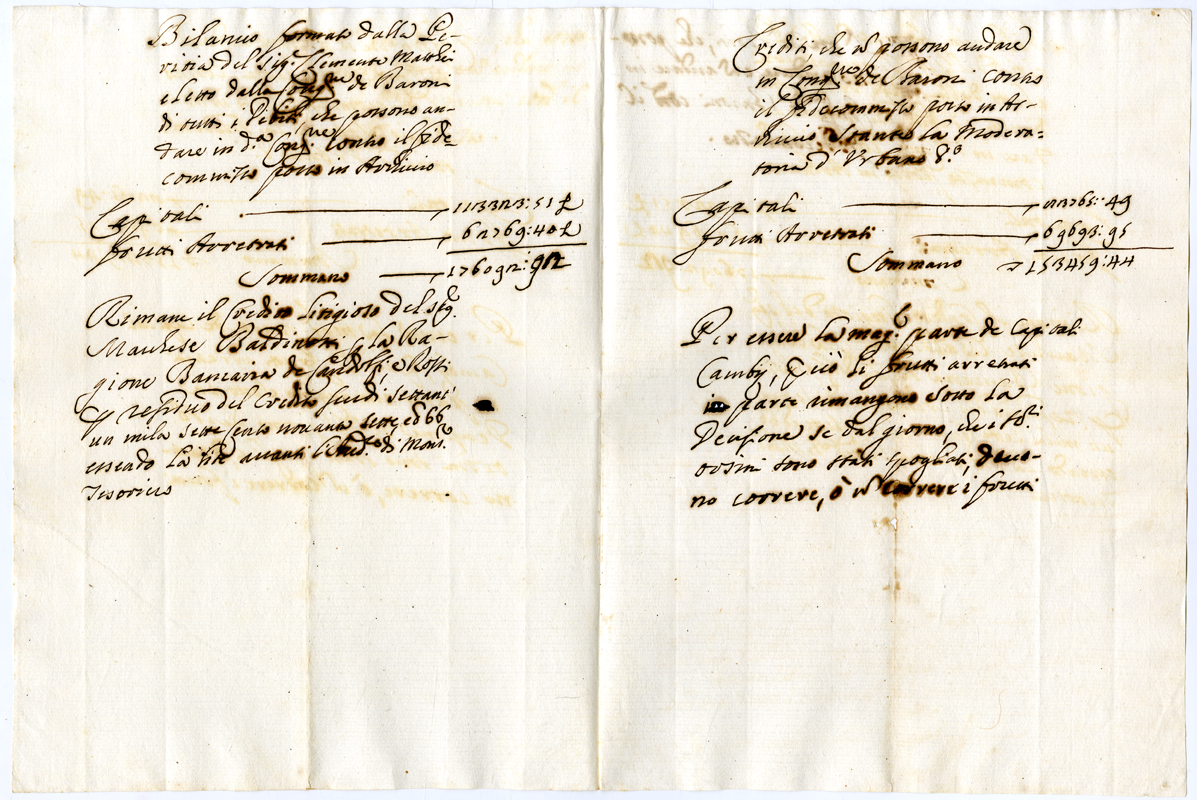 Bilancio formato dalla Pe-
ritia del Sig.r Clemente Matthei
eletto dalla Cong.ne de Baroni
di tutti i Debiti che possono an-
dare in d.a Cong.ne contro il fide-
commisso posto in Archivio
Capitali 113323:51
frutti Arretrati 62769:40
Sommano 176092:92
Rimane il Credito litigioso del Sig.
Marchese Baldinotti, e la Ra-
gione Bancaria de Gandolfi, e Rossi
residuo del Credito scudi settant'
un mila sette cento novanta sette, ed 66
essendo la lite avanti l'Aud.re di Mons.r
Tesoriero
Crediti che possono andare
in Cong.ne de Baroni contro
il fidecommisso posto in Ar-
chivio stante la Modera-
toria d'Urbano 8.o
Capitali 83765:49
frutti Arretrati 69693:95
Sommano 153459:44
Per essere la mag.r parte de Capitali
Camby, li frutti arretrati
in parte rimangono sotto la
Decisione se dal giorno, che i SS.ri
orsini sono stati spogliati, devo-
no correre, ò correre i frutti